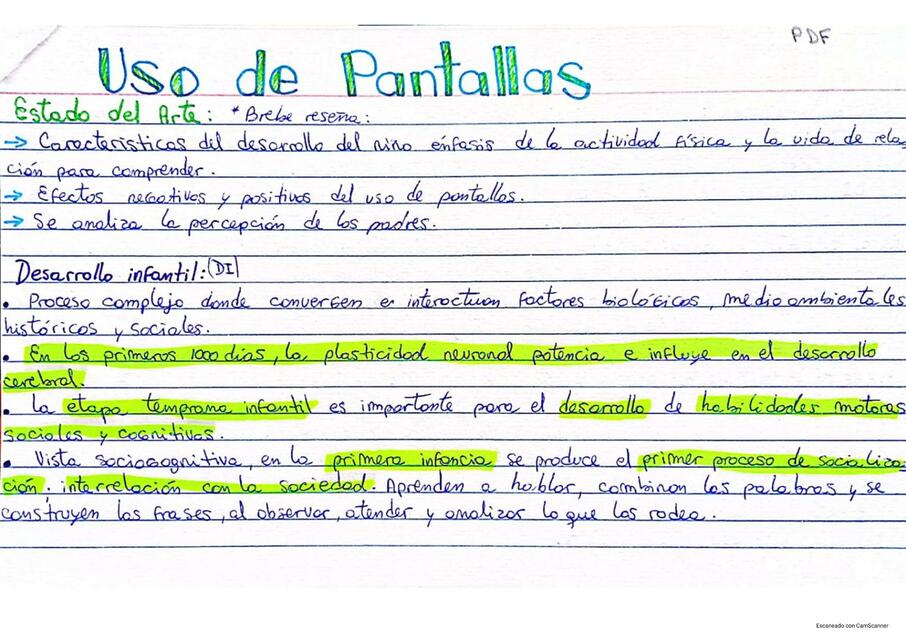 PDF
Uso de Pantallas
Estado del Arte: * Brebe reseña:
→ Características del desarrollo del niño énfasis de la actividad física y la vida de rela-
ción para comprender.
→ Efectos negativos y positivos del uso de pantallas.
→ Se analiza la percepción de los padres.
Desarrollo infantil: (DI)
• Proceso complejo donde convergen e interactuan factores biológicos, medioambientales
históricos y sociales.
• En los primeros 1000 dias, la plasticidad neuronal potencia e influye en el desarrollo
cerebral.
• La etapa temprana infantil es importante para el desarrollo de habilidades motoras
sociales y cognitivas.
• Vista sociocognitiva, en la primera infancia se produce el primer proceso de socializa-
ción: interrelación con la sociedad. Aprenden a hablar, combinan las palabras y se
construyen las frases, al observar, atender y analizar lo que las rodea.
Escaneado con CamScanner